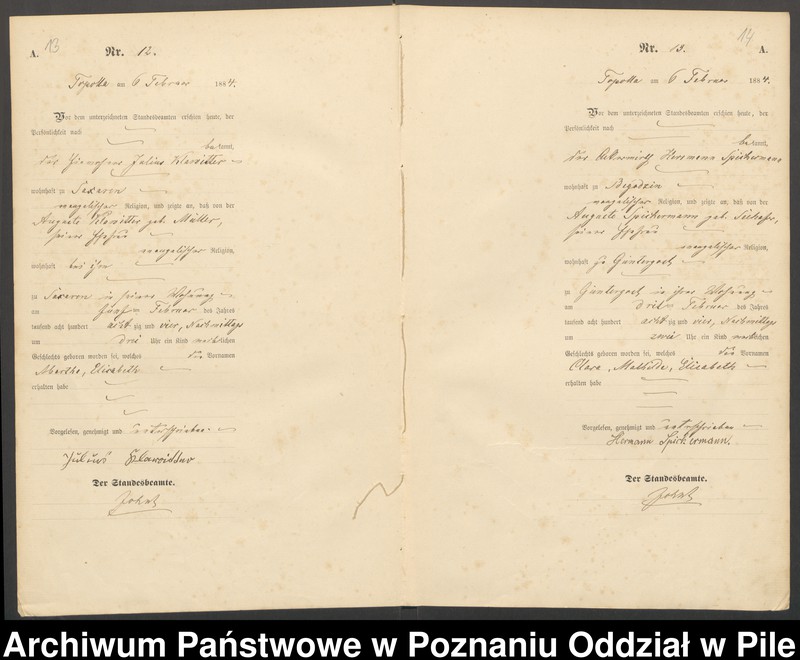 A.
13
Nr. 12.
am 6 Februar 1884.
Vor dem unterzeichneten Standesbeamten erschien heute, der
Persönlichkeit nach
bekannt,
der Julius Klawitter
wohnhaft zu
evangelischer Religion, und zeigte an, daß von der
Auguste Klawitter geb. Müller,
seiner Ehefrau
evangelischer Religion,
wohnhaft bei ihm
zu in seiner Wohnung
am fünften Februar des Jahres
tausend acht hundert achtzig und vier, Nachmittags
um drei Uhr ein Kind weiblichen
Geschlechts geboren worden sei, welches die Vornamen
Martha, Elisabeth
erhalten habe
Vorgelesen, genehmigt und unterschrieben.
Julius Klawitter
Der Standesbeamte.
14
Nr. 13.
A.
am 6 Februar 1884.
Vor dem unterzeichneten Standesbeamten erschien heute, der
Persönlichkeit nach
bekannt,
der Ackerwirth Hermann Spickermann
wohnhaft zu
evangelischer Religion, und zeigte an, daß von der
Auguste Spickermann geb.
seiner Ehefrau
evangelischer Religion,
wohnhaft zu Güntergost
zu Güntergost in ihrer Wohnung
am dritten Februar des Jahres
tausend acht hundert achtzig und vier, Nachmittags
um zwei Uhr ein Kind weiblichen
Geschlechts geboren worden sei, welches die Vornamen
Clara, Mathilde, Elisabeth
erhalten habe
Vorgelesen, genehmigt und unterschrieben
Hermann Spickermann.
Der Standesbeamte.
Archiwum Państwowe w Poznaniu Oddział w Pile